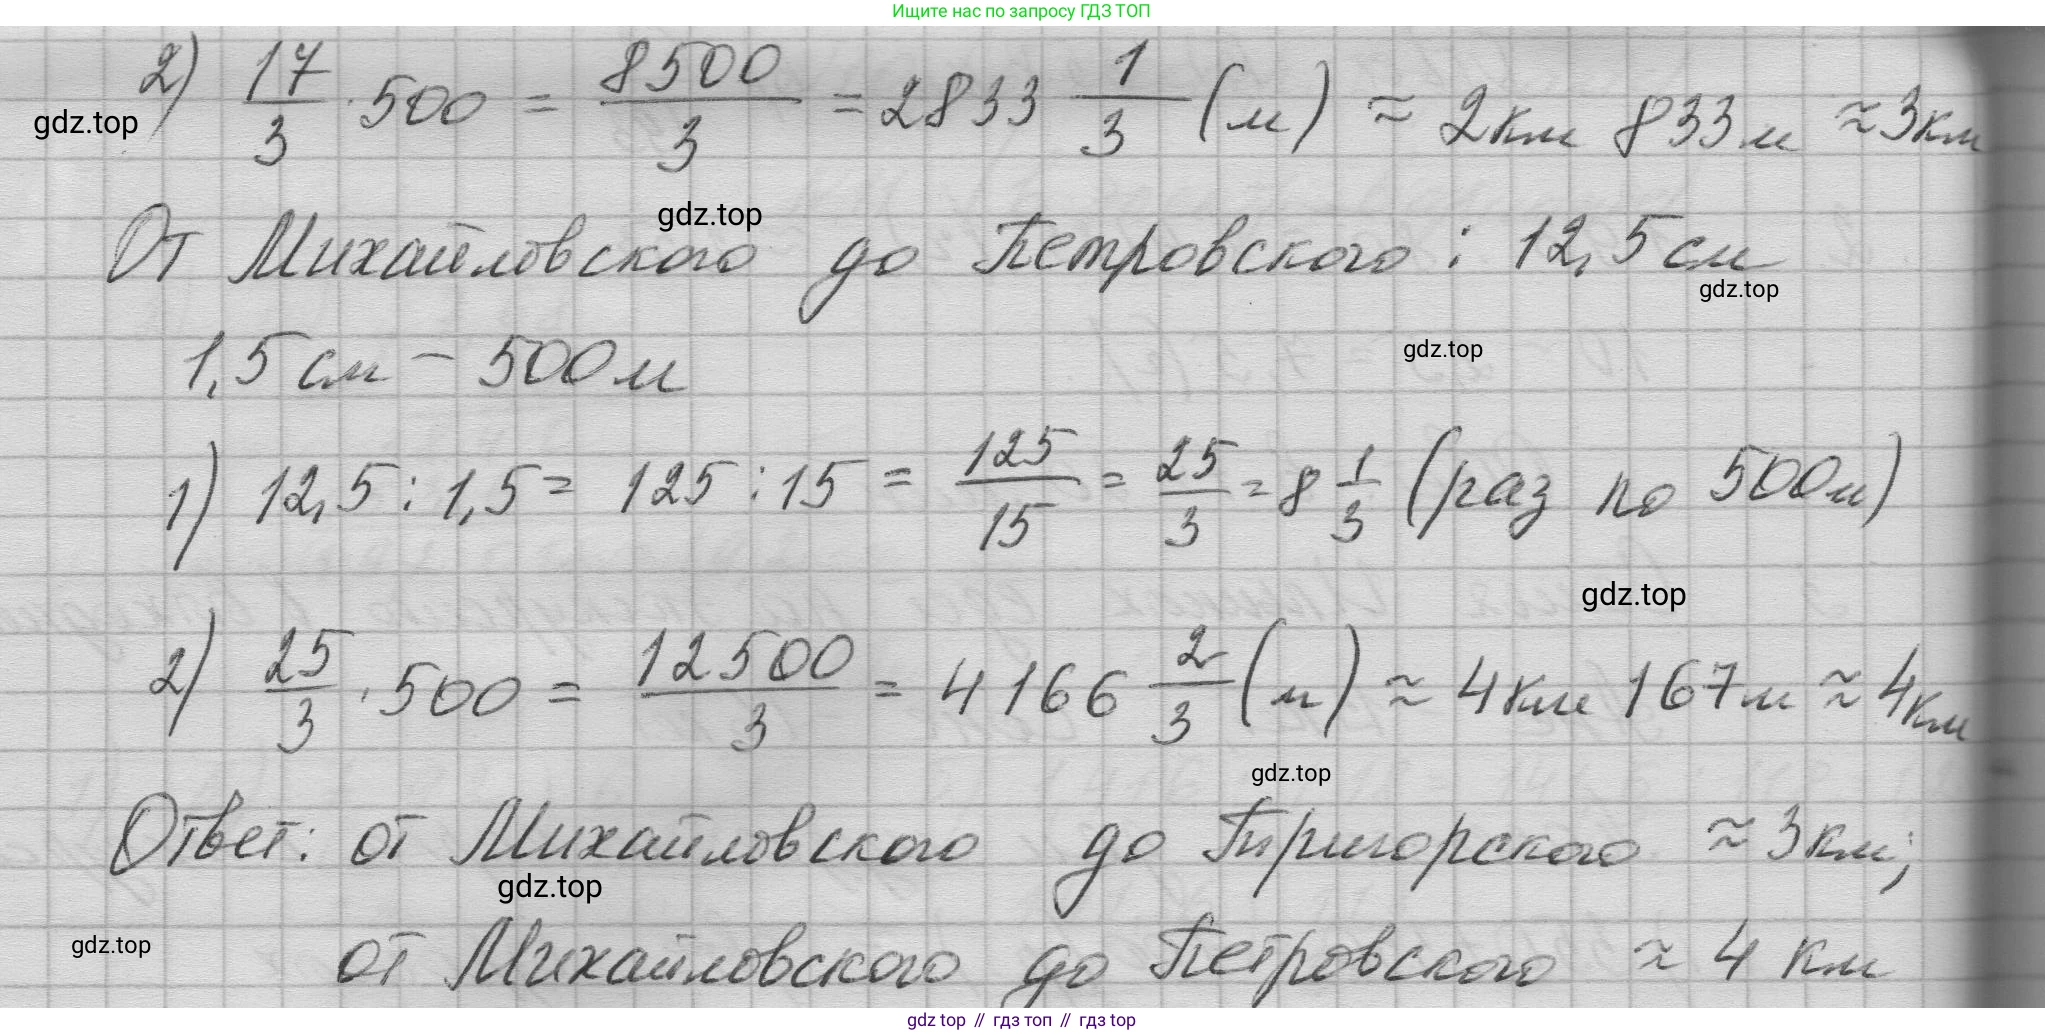 Ищите нас по запросу ГДЗ ТОП
2) 17/3 · 500 = 8500/3 = 2833 1/3 (м) ≈ 2км 833м ≈ 3км
gdz.top
gdz.top
От Михайловского до Петровского : 12,5см
gdz.top
1,5см – 500м
gdz.top
1) 12,5 : 1,5 = 125 : 15 = 125/15 = 25/3 = 8 1/3 (раз по 500м)
gdz.top
2) 25/3 · 500 = 12500/3 = 4166 2/3 (м) ≈ 4км 167м ≈ 4км
gdz.top
Ответ: от Михайловского до ≈ 3км;
gdz.top
gdz.top
от Михайловского до Петровского ≈ 4 км
gdz top // гдз топ // gdz top